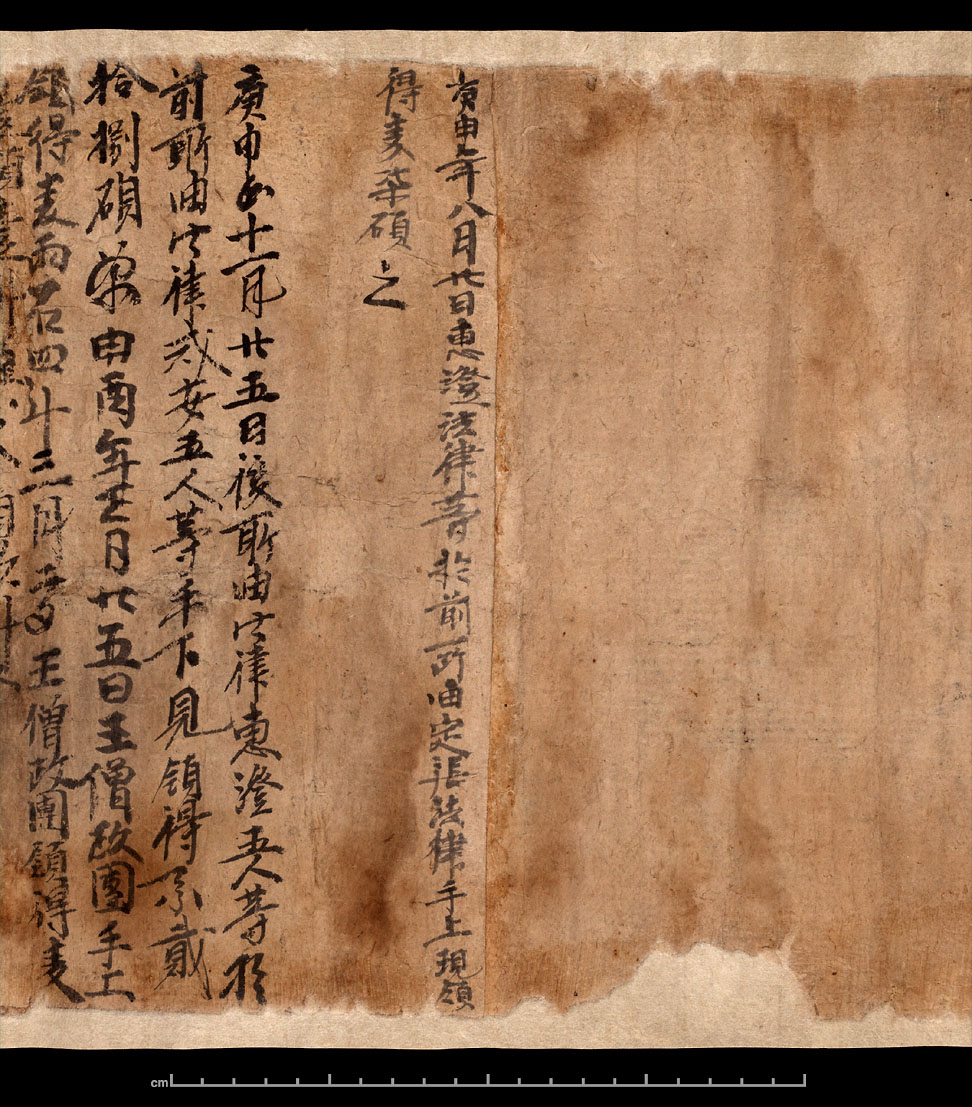 庚申年八月廿日惠澄法律等於前所由定真法律手上現領
得麦柒碩之
庚申年十一月廿五日後所由法律惠澄五人等於
前所由法律戒安五人等手下見領得粟貳
拾捌碩粟申酉年正月廿五日王僧政團手上
領得麦兩石四斗三月王僧政團領得麦